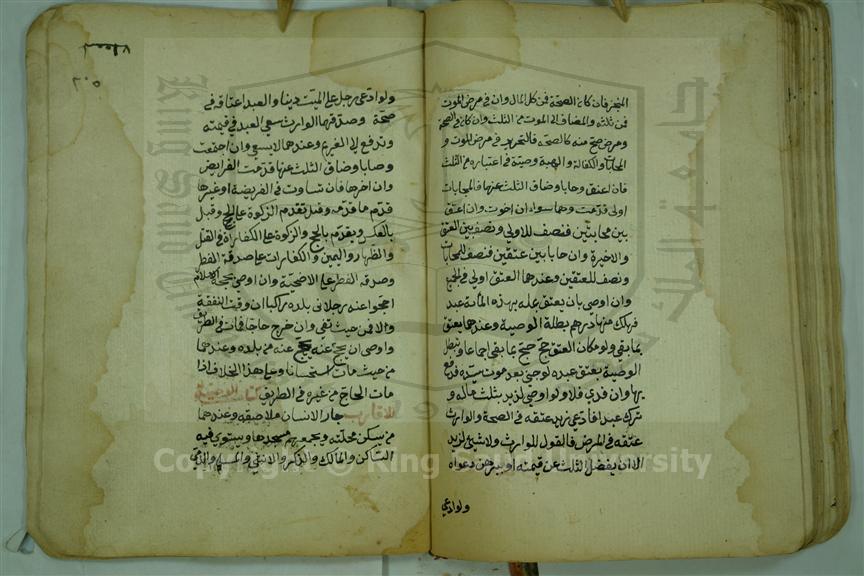 المنجز فان كان في الصحة فمن كل المال وان في مرض الموت
فمن ثلثه والمضاف الى الموت من الثلث وان كان في الصحة
ومرض صح منه كالصحة فالتحرير في مرض الموت و
المحاباة والكفالة والهبة وصية في اعتباره من الثلث
فان اعتق وحابا وضاق الثلث عنها فالمحابات
اولى قدمت وهما سواء ان اخرت وان اعتق
بين محابتين فنصف للاولى ونصف بين العتق
والاخيرة وان حابا بين عتقين فنصف للمحابات
ونصف للعتقين وعندهما العتق اولى في الجميع
وان اوصى بان يعتق عنه بهذه المائة عبد
فهلك منها درهم بطلة الوصية وعندهما يعتق
بما بقي ولو مكان العتق حج حج بما بقي اجماعا وتبطل
الوصية بعتق عبده لو جنى بعد موت سيده فدفع
بها وان فدي فلا ولو اوصى لزيد بثلث ماله و
ترك عبدا فادعى زيد عتقه في الصحة والوارث
عتقه في المرض فالقول للوارث ولا شيئ لزيد
الا ان يفضل الثلث عن قيمته او يبرهن دعواه
ولو ادعى
ولو ادعى رجل على الميت دينا والعبد اعتاقه في
صحة وصدقهما الوارث سعى العبد في قيمته
وتدفع الى الغريم وعندهما لا يسعى وان اجتمعت
وصايا وضاق الثلث عنها قدمت الفرايض
وان اخرها فان تساوت في الفريضة او غيرها
قدم ما قدمه وقيل تقدم الزكوة على الحج وقيل
بالعكس ويقدم بالحج والزكوة على الكفارة في القتل
والظهار واليمين والكفارات على صدقة الفطر
وصدقة الفطر على الاضحية وان اوصى بحجة الاسلام
احجوا عنه رجلا من بلده راكبا ان وفت النفقة
والا فمن حيث تفي وان خرج حاجا فمات في الطريق
واوصى ان يحج عنه يحج عنه من بلده وعندهما
من حيث مات استحسانا وعلى هذا الخلاف اذا
مات الحاج من غيره في الطريق
للاقارب جار الانسان ملاصقه وعندهما
من يسكن محلته ويجمعهم مسجدها ويستوي فيه
الساكن والمالك والذكر والانثى والمسلم والذمي
Copyright © King Saud University